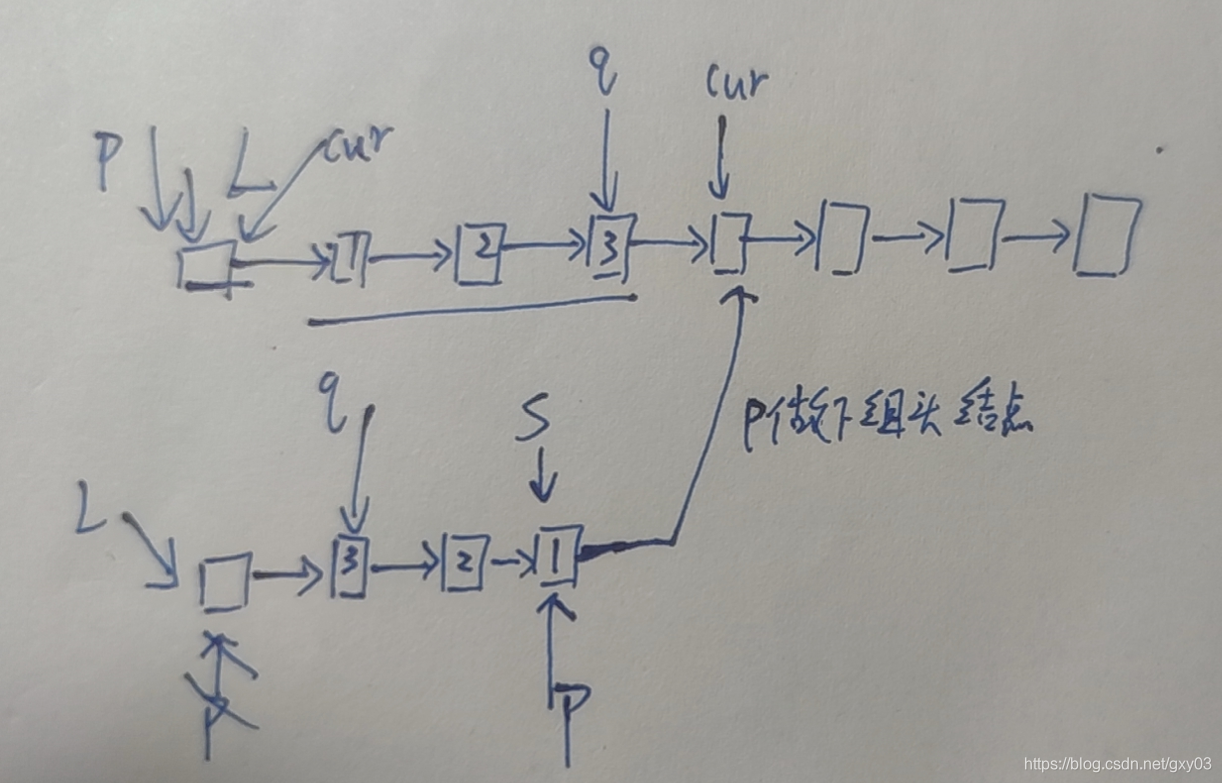 q cur
P L cur
1 2 3
q S
P做下组头结点
L
3 2 1
P P
https://blog.csdn.net/gxy03